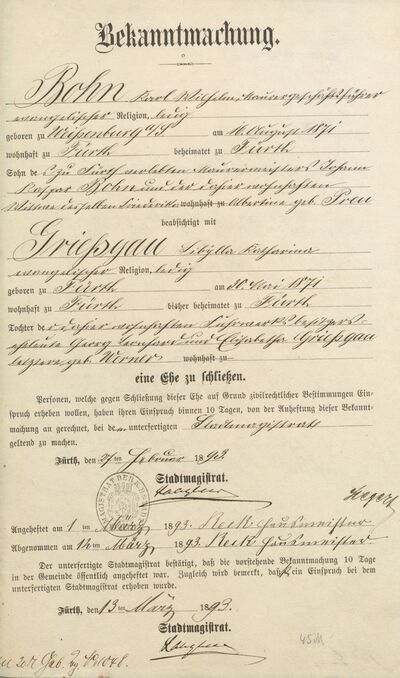 Bekanntmachung.
Bohn Karl Wilhelm, Maurergeschäftsführer
evangelischer Religion, ledig
geboren zu Weißenburg a/S am 16. August 1871
wohnhaft zu Fürth beheimatet zu Fürth
Sohn des zu Fürth verlebten Maurermeisters Johann
Kaspar Bohn und der daher wohnhaften
Wittwe desselben Friederika wohnhaft zu Albertine geb. Prau
beabsichtigt mit
Grießgau Sibylla Katharina
evangelischer Religion, ledig
geboren zu Fürth am 30. Mai 1871
wohnhaft zu Fürth bisher beheimatet zu Fürth
Tochter der daher wohnhaften Fuhrwerksbesitzers-
eheleute Georg Leonhard und Elisabetha Grießgau
letztere geb. Werner wohnhaft zu
eine Ehe zu schließen.
Personen, welche gegen Schließung dieser Ehe auf Grund zivilrechtlicher Bestimmungen Ein-
spruch erheben wollen, haben ihren Einspruch binnen 10 Tagen, von der Anheftung dieser Bekannt-
machung an gerechnet, bei dem unterfertigten Stadtmagistrat
geltend zu machen.
Fürth, den 27ten Februar 1893
Stadtmagistrat.
Angeheftet am 1ten März 1893. Reck Hausmeister
Abgenommen am 12ten März 1893. Reck Hausmeister
Der unterfertigte Stadtmagistrat bestätigt, daß die vorstehende Bekanntmachung 10 Tage
in der Gemeinde öffentlich angeheftet war. Zugleich wird bemerkt, daß ein Einspruch bei dem
unterfertigten Stadtmagistrat erhoben wurde.
Fürth, den 13ten März 1893.
Stadtmagistrat.